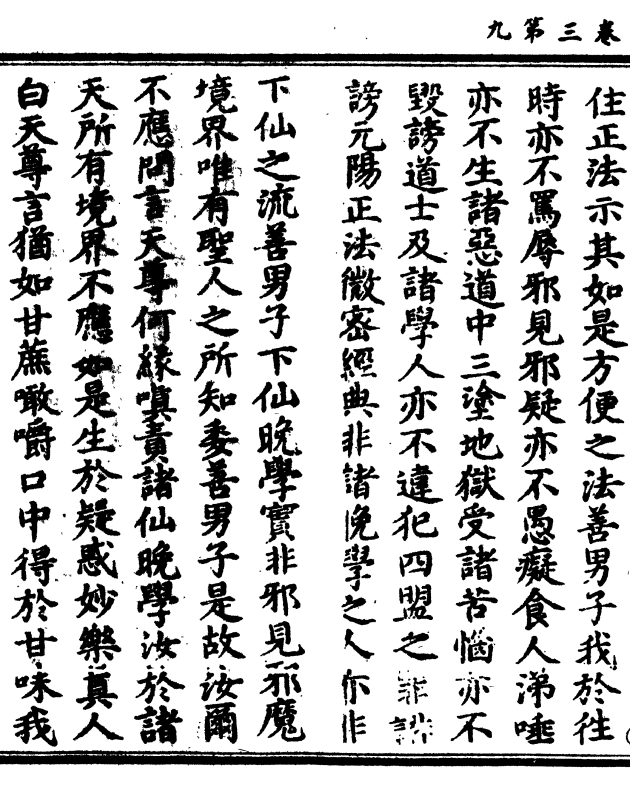 卷三第九
住正法示其如是方便之法善男子我於往
時亦不罵辱邪見邪疑亦不愚癡食人涕唾
亦不生諸惡道中三塗地獄受諸苦惱亦不
毀謗道士及諸學人亦不違犯四盟之罪謗
謗元陽正法微密經典非諸晚學之人亦非
下仙之流善男子下仙晚學實非邪見邪魔
境界唯有聖人之所知委善男子是故汝爾
不應問言天尊何緣嗔責諸仙晚學汝於諸
天所有境界不應如是生於疑惑妙樂真人
白天尊言猶如甘蔗噉嚼口中得於甘味我